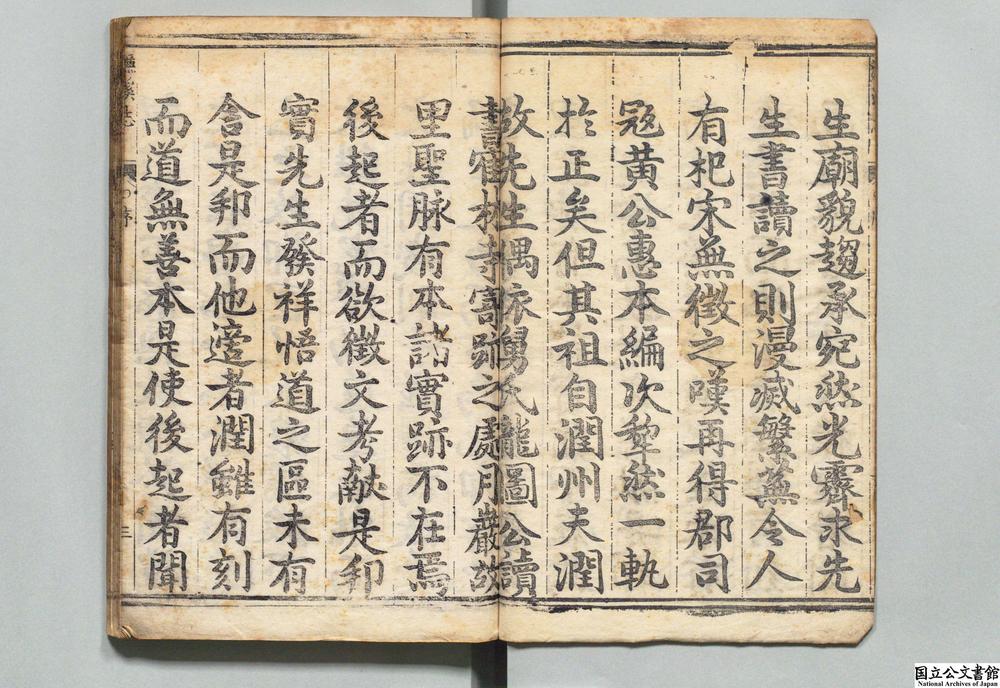 生廟貌趨承宛然光霽求先
生書讀之則漫滅繁蕪令人
有杞宋無徵之嘆再得郡司
冦黃公惠本編次犂然一軌
於正矣但其祖自潤州夫潤
故先生偶依舅氏龍圖公讀
書寉林寺寄跡之處月巖故
里聖脉有本諸實跡不在焉
後起者而欲徵文考献是邦
實先生發祥悟道之區未有
舍是邦而他適者潤雖有刻
而道無善本是使後起者聞
序
三
国立公文書館
National Archives of Japan